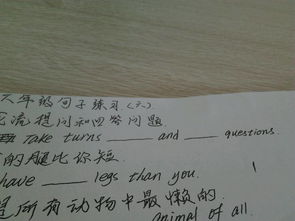 六年级句子练习(六)
轮流提问和回答问题
Take turns ____ and ____ questions.
的腿比你短.
have ____ legs than you.
是所有动物中最懒的
animal of all.